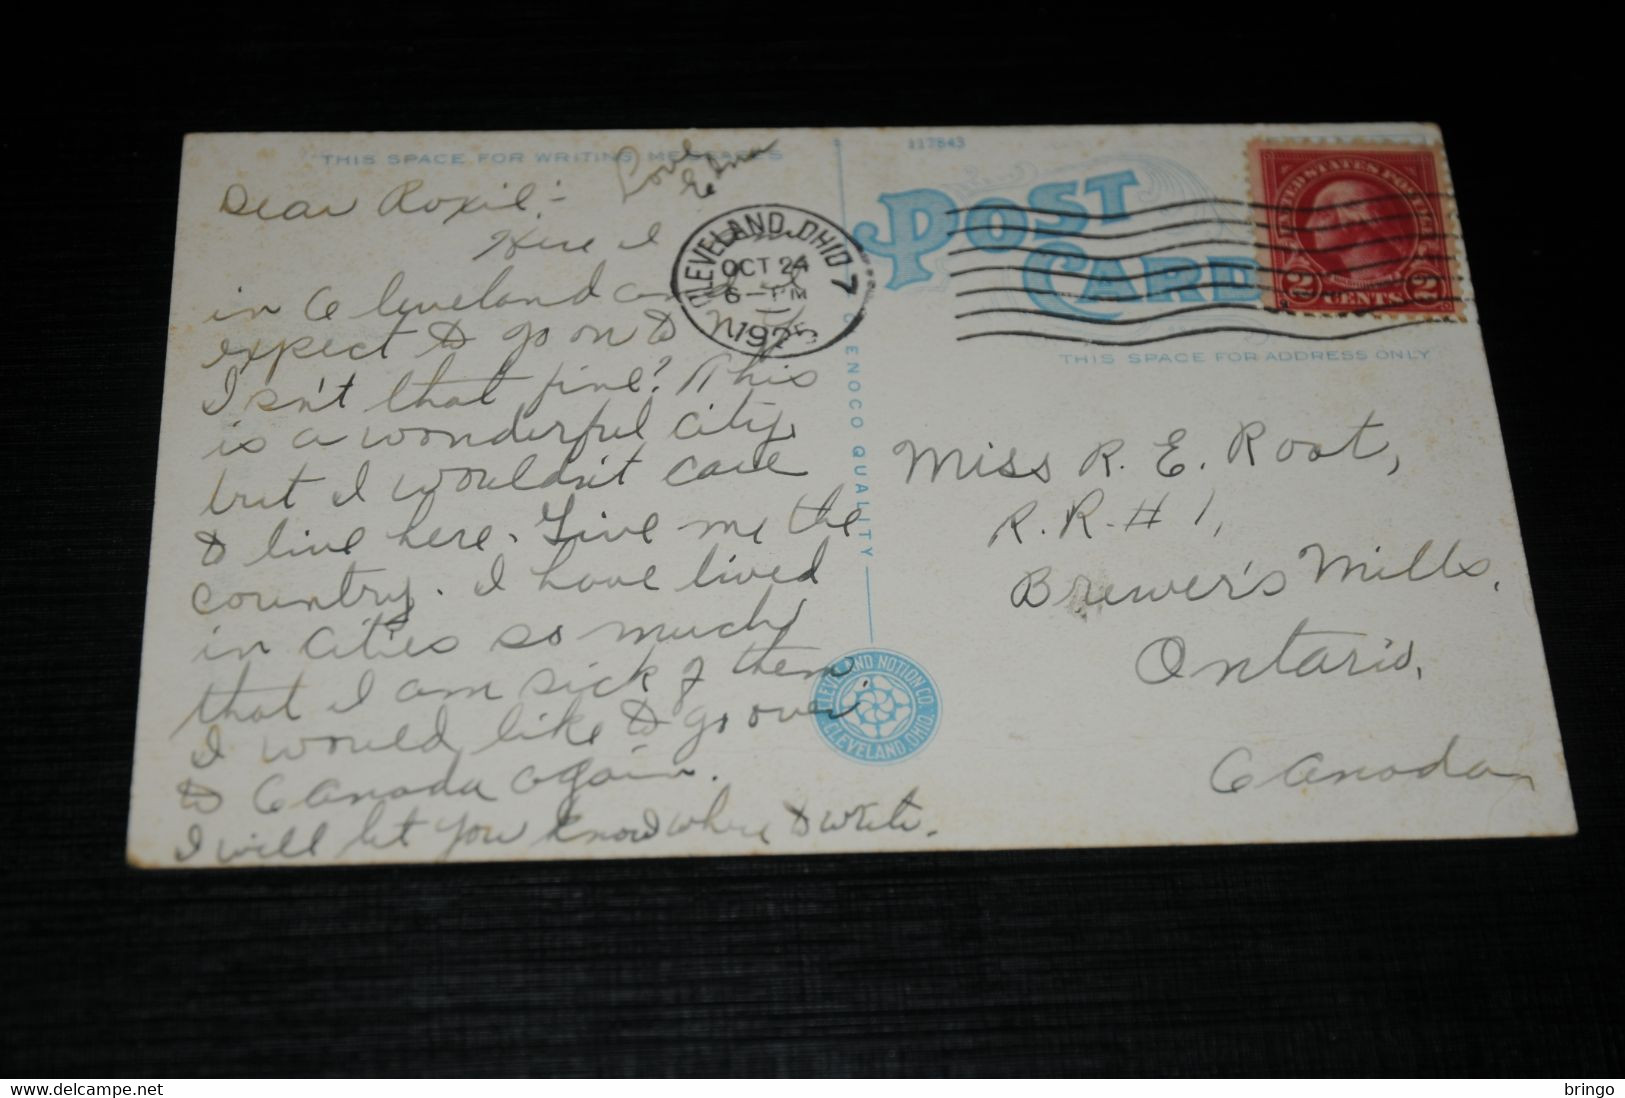 THIS SPACE FOR WRITING MESSAGES
Love
Edna
Dear Roxie:-
Here I
in Cleveland and
expect to go on to N.Y.
Isn't that fine? This
is a wonderful city,
but I wouldn't care
to live here. Give me the
country. I have lived
in cities so much
that I am sick of them.
I would like to go over
to Canada again.
I will let you know where to write.
CLEVELAND, OHIO 7
OCT 24
6-PM
1925
ENOCO QUALITY
CLEVELAND NOTION CO.
CLEVELAND, OHIO.
117843
POST
CARD
UNITED STATES POSTAGE
2 CENTS 2
THIS SPACE FOR ADDRESS ONLY
Miss R. E. Root,
R. R. # 1,
Brewer's Mills,
Ontario,
Canada
delcampe.net
bringo